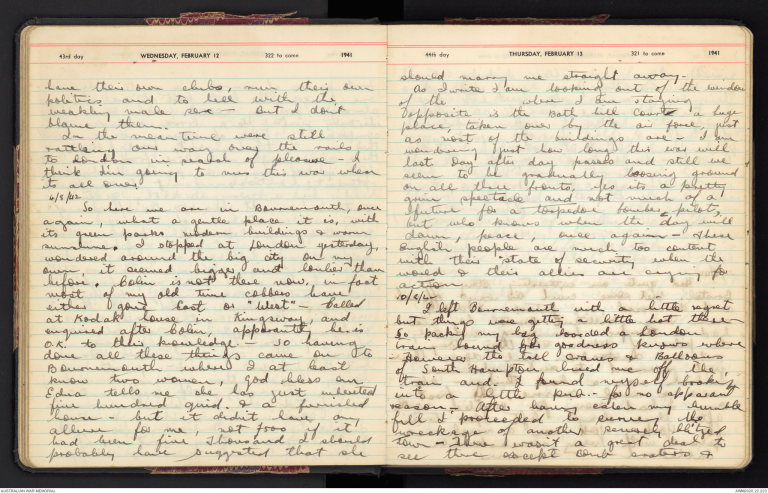 43rd day WEDNESDAY, FEBRUARY 12 322 to come 1941
have their own clubs, run their own
politics and to hell with the
weakley male sex — But I don't
blame them.
In the meantime were still
rattling our way over the rails
to London in search of pleasure — I
think I'm going to miss this war when
its all over.
6/5/42
So here we are in Bournemouth, once
again, what a gentle place it is, with
its green parks modern buildings & warm
sunshine. I stopped at London yesterday,
wondered around the big city on my
own, it seemed bigger and lonlier than
before. Colin is not there now, in fact
most of my old time cobbers have
either gone "East or "West" — Called
at Kodak house in Kingsway, and
enquired after Colin, apparantly he is
O.K. to their knowledge. — So having
done all these things came on to
Bournemouth where I at least
know two women, God bless em
Edna tells me she has just inherited
five hundred quid, & a furnished
house — but it didn't have any
allure for me — not 500 if it
had been five Thousand I should
probably have suggested that she
44th day THURSDAY, FEBRUARY 13 321 to come 1941
should marry me straight away —
As I write I am looking out of the window
of the where I am staying
opposite is the Bath hill Courte a huge
place, taken over by the air force, just
as most of the buildings are — I am
wondering just how long this war will
last day after day passes and still we
seem to be gradually loosing ground
on all three fronts, yes its a pretty
grim spectacle and not much of a
future for a torpedoe bomber pilot,
but who knows when the day will
dawn, peace, once again — These
English people are much too content
with their state of security when the
world & their allies are crying for
action
10/5/42
I left Bournemouth with a little regret
but things were getting a little hot there —
So packing my bag boarded a London
train bound for goodness knows where
— However the tall cranes & Balloons
of South Hampton lured me off the
train and I found myself booking
into a little pub — for no apparant
reason. — After having eaten my humble
fill I proceeded to survey the
wreckage of another severely blitzed
town — There wasn't a great deal to
see there except Bomb craters &
AUSTRALIAN WAR MEMORIAL
AWM2020.22.223